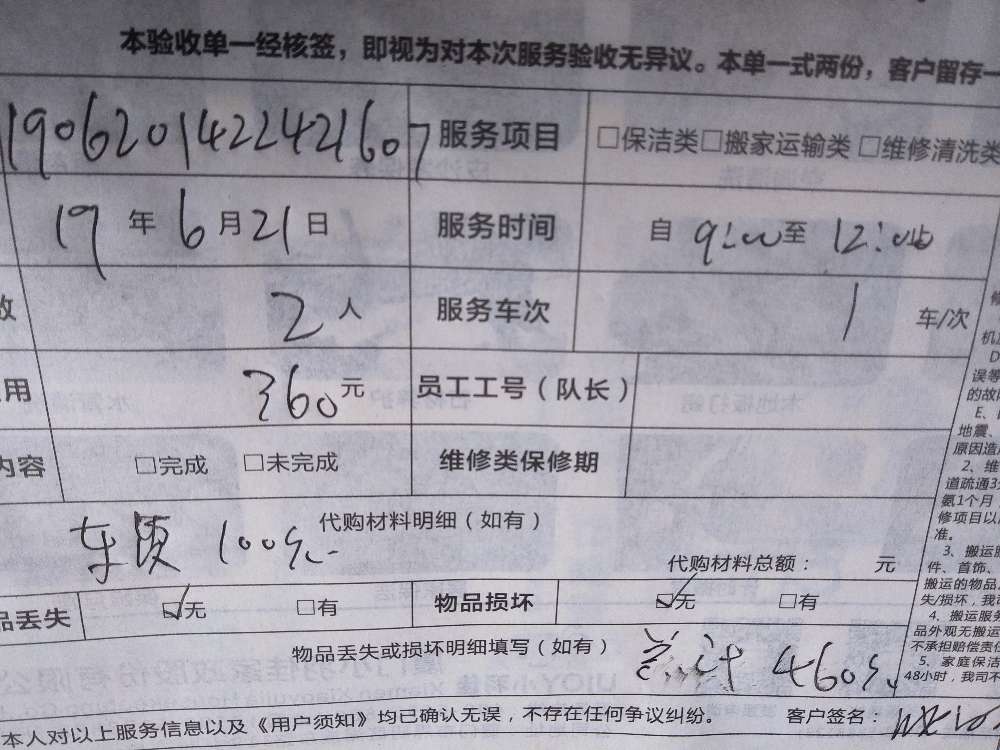 本验收单一经核签，即视为对本次服务验收无异议。本单一式两份，客户留存一
1906201422421607 服务项目 □保洁类□搬家运输类 □维修清洗类
19 年 6 月 21 日 服务时间 自 9:00 至 12:00止
数 2 人 服务车次 1 车/次
用 360 元 员工工号（队长）
内容 □完成 □未完成 维修类保修期
代购材料明细（如有）
车费 100元
代购材料总额： 元
品丢失 ☑无 □有 物品损坏 ☑无 □有
物品丢失或损坏明细填写（如有）
总计 460元
本人对以上服务信息以及《用户须知》均已确认无误，不存在任何争议纠纷。 客户签名：
修
机
D
误等
的故
E、
地震、
原因造
2、维
道疏通3
氨1个月
修项目以
准。
3、搬运
件、首饰、
搬运的物品
失/损坏，我
4、搬运服
品外观无搬运
不承担赔偿责任
5、家庭保洁
48小时，我司不